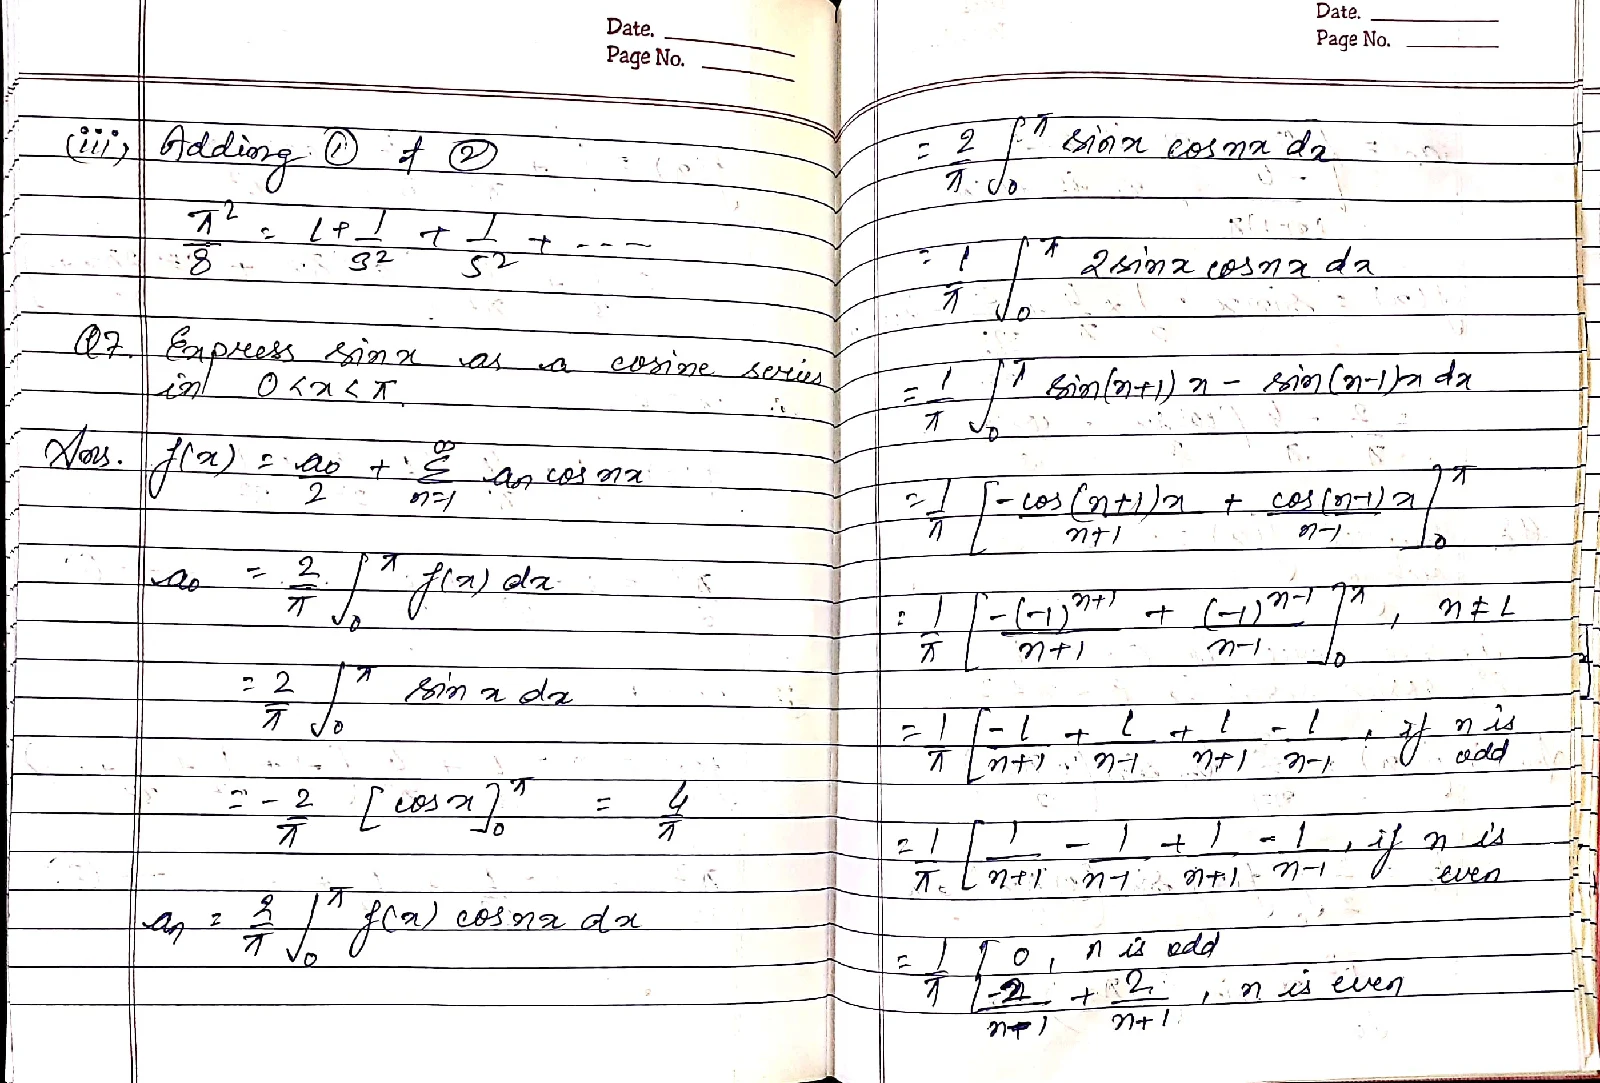 Date.
Page No.
(iii) Adding ① & ②
π²/8 = 1 + 1/3² + 1/5² + ---
Q7. Express sinx as a cosine series
in 0<x<π.
Ans. f(x) = a₀/2 + Σₙ₌₁^∞ aₙ cos nx
a₀ = 2/π ∫₀^π f(x) dx
= 2/π ∫₀^π sin x dx
= -2/π [cosx]₀^π = 4/π
aₙ = 2/π ∫₀^π f(x) cosnx dx
Date.
Page No.
= 2/π ∫₀^π sinx cosnx dx
= 1/π ∫₀^π 2sinx cosnx dx
= 1/π ∫₀^π sin(n+1)x - sin(n-1)x dx
= 1/π [-cos(n+1)x/n+1 + cos(n-1)x/n-1]₀^π
= 1/π [-(-1)^n+1/n+1 + (-1)^n-1/n-1]₀^π, n≠1
= 1/π [-1/n+1 + 1/n-1 + 1/n+1 - 1/n-1, if n is odd
= 1/π [1/n+1 - 1/n-1 + 1/n+1 - 1/n-1, if n is even
= 1/π [0, n is odd
-2/n-1 + 2/n+1, n is even